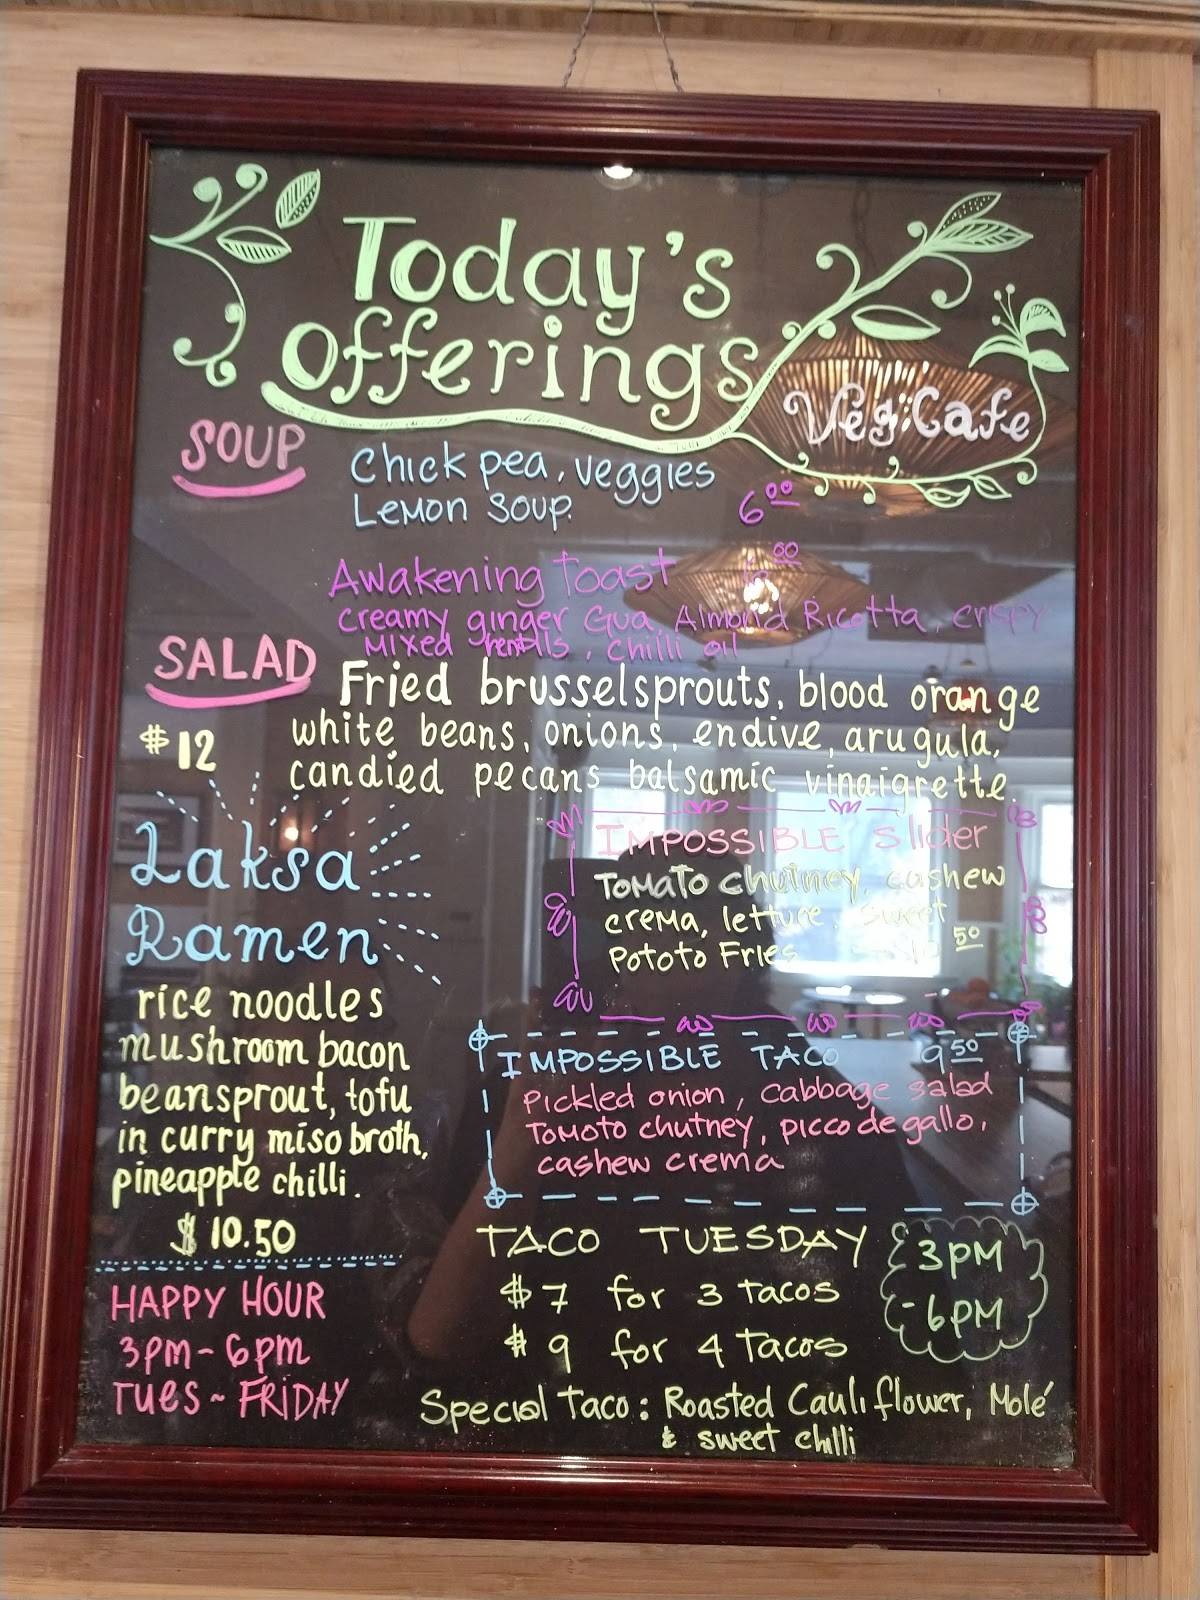 Today's
Offerings
Veg Cafe
SOUP
Chick pea, veggies
Lemon Soup.
6 00
Awakening Toast
00
creamy ginger Gua Almond Ricotta, crispy
Mixed , chilli oil
SALAD
$12
Fried brusselsprouts, blood orange
white beans, onions, endive, arugula,
candied pecans balsamic vinaigrette
Laksa
Ramen
rice noodles
mushroom bacon
beansprout, tofu
in curry miso broth,
pineapple chilli.
$ 10.50
IMPOSSIBLE Slider
Tomato chutney, cashew
crema, lettuce, sweet
Pototo Fries
50
IMPOSSIBLE TACO 9 50
Pickled onion, cabbage salad
Tomoto chutney, picco de gallo,
cashew crema
HAPPY HOUR
3pm - 6pm
TUES ~ FRIDAY
TACO TUESDAY
$7 for 3 Tacos
$9 for 4 Tacos
3PM
-6PM
Special Taco: Roasted Cauliflower, Molé
& sweet chilli